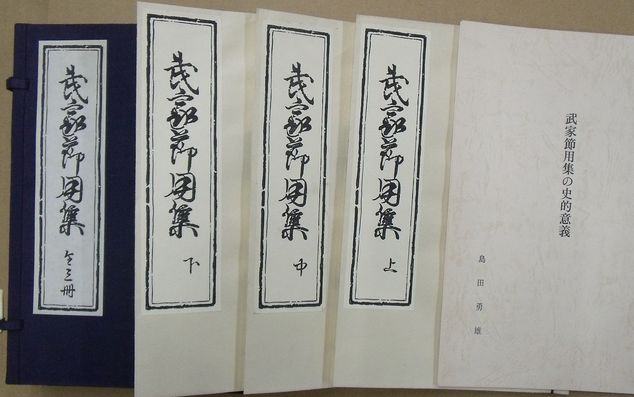 武家節用集の史的意義
島田勇雄
武家節用集 上
武家節用集 中
武家節用集 下
武家節用集 全三冊